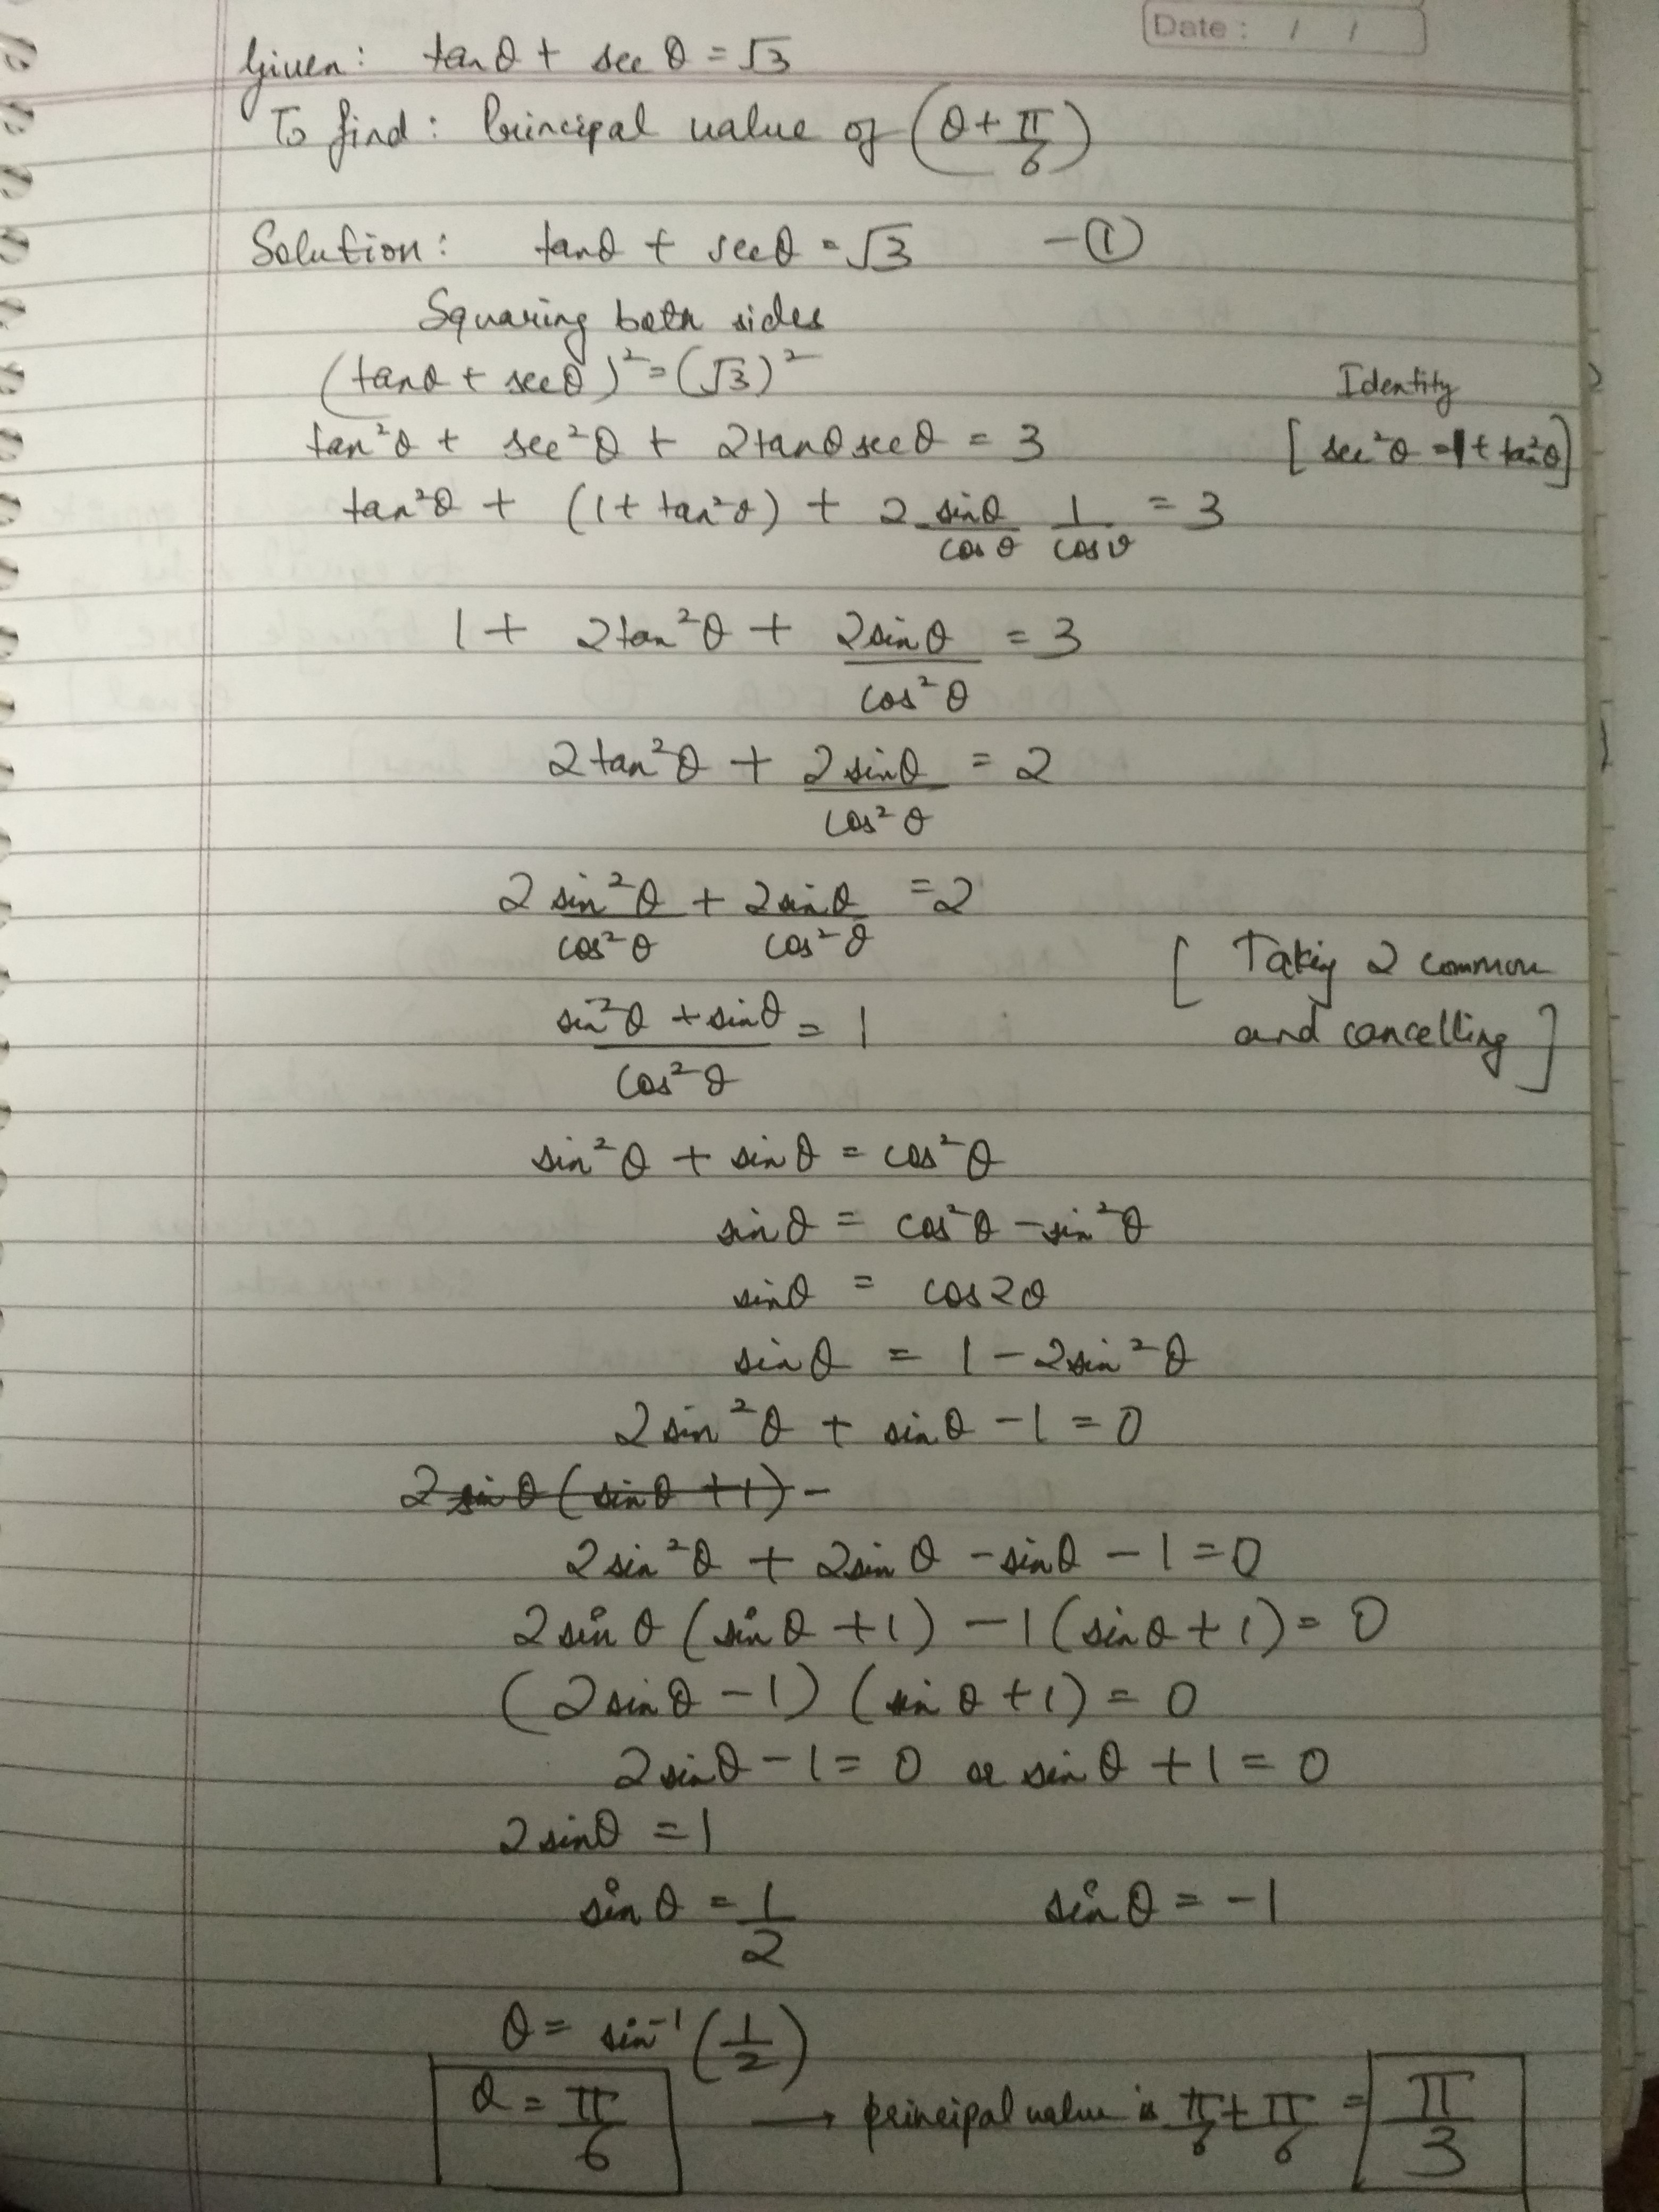 Date : / /
Given: tanθ + sec θ = √3
To find: Principal value of (θ + π/6)
Solution: tanθ + secθ = √3 - ①
Squaring both sides
(tanθ + secθ)² = (√3)²
Identity
tan²θ + sec²θ + 2tanθsecθ = 3 [sec²θ = 1 + tan²θ]
tan²θ + (1 + tan²θ) + 2 sinθ/cosθ 1/cosθ = 3
1 + 2tan²θ + 2sinθ/cos²θ = 3
2tan²θ + 2sinθ/cos²θ = 2
2sin²θ/cos²θ + 2sinθ/cos²θ = 2
[Taking 2 common
and cancelling]
sin²θ + sinθ/cos²θ = 1
sin²θ + sinθ = cos²θ
sinθ = cos²θ - sin²θ
sinθ = cos2θ
sinθ = 1 - 2sin²θ
2sin²θ + sinθ - 1 = 0
2sinθ(sinθ + 1) -
2sin²θ + 2sinθ - sinθ - 1 = 0
2sinθ(sinθ + 1) - 1(sinθ + 1) = 0
(2sinθ - 1)(sinθ + 1) = 0
2sinθ - 1 = 0 or sinθ + 1 = 0
2sinθ = 1
sinθ = 1/2 sinθ = -1
θ = sin⁻¹(1/2)
θ = π/6 → principal value is π/6 + π/6 = π/3